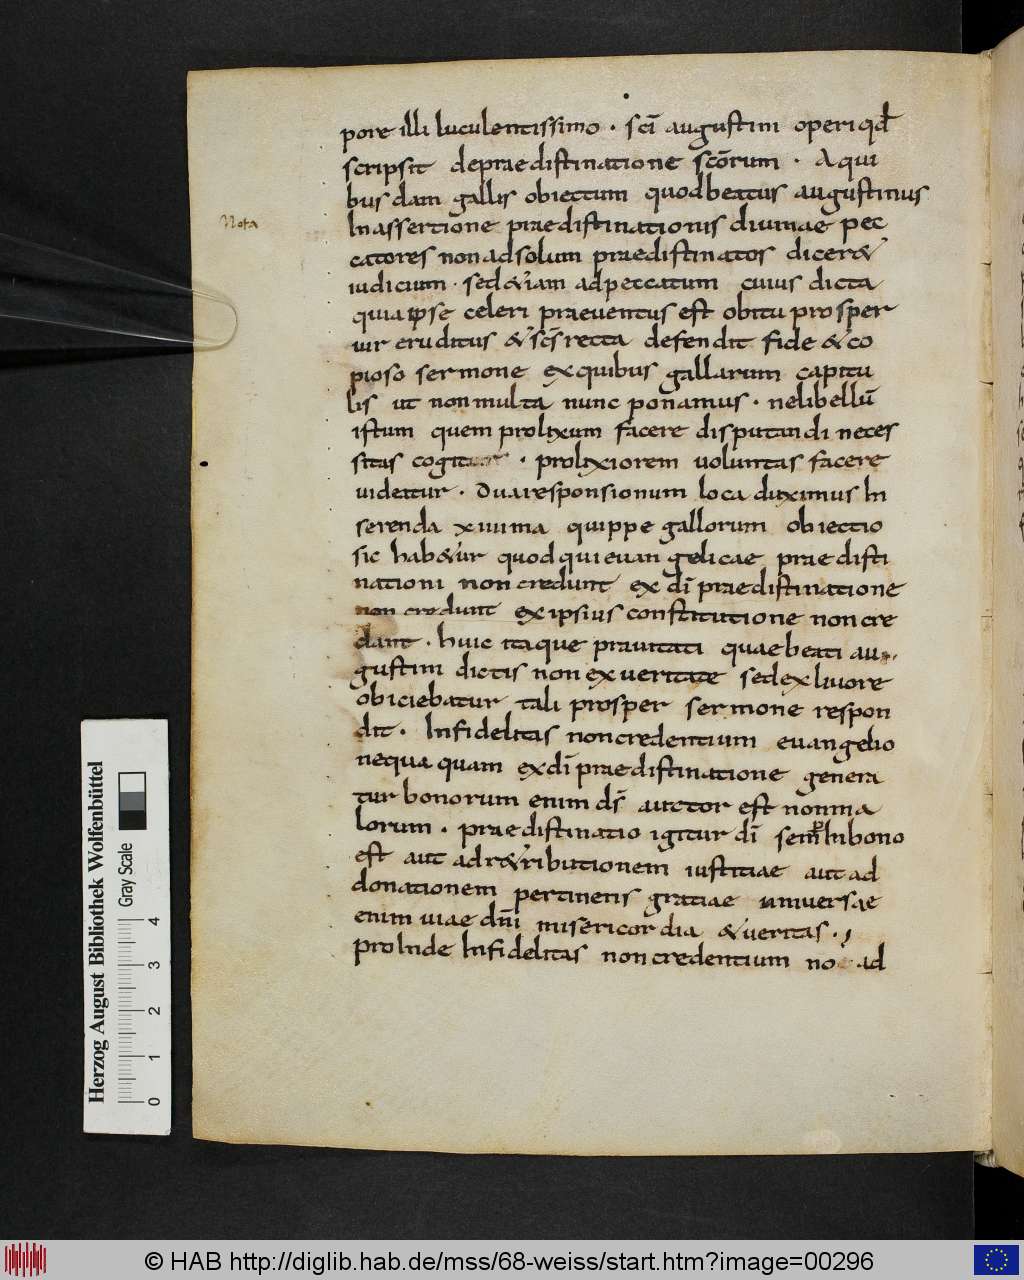 pore illi luculentissimo · sci augustini operi qd
scripsit depraedistinatione scorum · A qui
Nota
busdam gallis obiectum quodbeatus augustinus
Inassertione praedistinationis diuinae pec
catores nonadsolum praedistinatos dicer&
iudicium · sed&iam adpeccatum cuius dicta
quiaipse celeri praeuentus est obitu prosper
uir eruditus & scs recta defendit fide & co
pioso sermone exquibus gallarum capitu
lis ut nonmulta nunc ponamus · nelibellū
istum quem prolixum facere disputandi neces
sitas · prolixiorem uoluntas facere
uideatur · Duaresponsionum loca duximus In
serenda xiiiima quippe gallorum obiectio
sic hab&ur quod qui euangelicae praedisti
nationi non credunt ex di praedistinatione
non credunt exipsius constitutione non cre
dant · huic itaque prauitati quaebeati au
gustini dictis non exueritate sedexliuore
obiciebatur tali prosper sermone respon
dit · Infidelitas noncredentium euangelio
nequaquam exdi praedistinatione genera
tur bonorum enim ds auctor est nonma
lorum · praedistinatio igitur di semp Inbono
est aut adr&ributionem iustitiae aut ad
donationem pertinens gratiae uniuersae
enim uiae dni misericordia & ueritas ·
proInde Infidelitas noncredentium ad
Herzog August Bibliothek Wolfenbüttel
Gray Scale
0 1 2 3 4
© HAB http://diglib.hab.de/mss/68-weiss/start.htm?image=00296